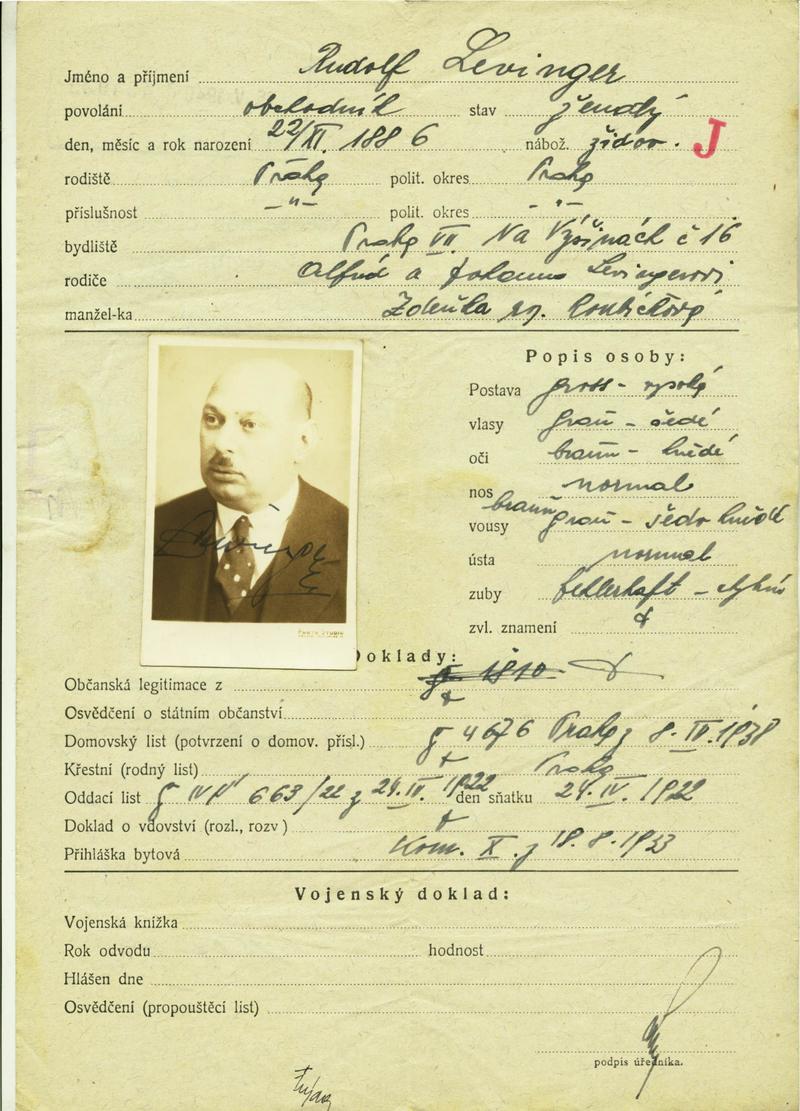 Jméno a příjmení Rudolf Levinger
povolání obchodník stav ženatý
den, měsíc a rok narození 22/XI. 1886 nábož. židov. J
rodiště Praha polit. okres Praha
příslušnost –"– polit. okres –"–
bydliště Praha VII Na Výšinách č 16
rodiče Alfréd a Johanna Levingerovi
manžel-ka Zdeňka roz. Roubíčková
Popis osoby:
Postava gross - vysoká
vlasy grau - šedé
oči braun - hnědé
nos normal
vousy braungrau - šedo hnědé
ústa normal
zuby fehlerhaft -
zvl. znamení
Doklady:
Občanská legitimace z
Osvědčení o státním občanství
Domovský list (potvrzení o domov. přísl.) 4676 Praha 8. IV. 1938
Křestní (rodný list) Praha
Oddací list 663/22 z 24. IV. 1922 den sňatku 24. IV. 1922
Doklad o vdovství (rozl., rozv)
Přihláška bytová Kom. X. z 18. 8. 1933
Vojenský doklad:
Vojenská knížka
Rok odvodu hodnost
Hlášen dne
Osvědčení (propouštěcí list)
podpis úředníka.